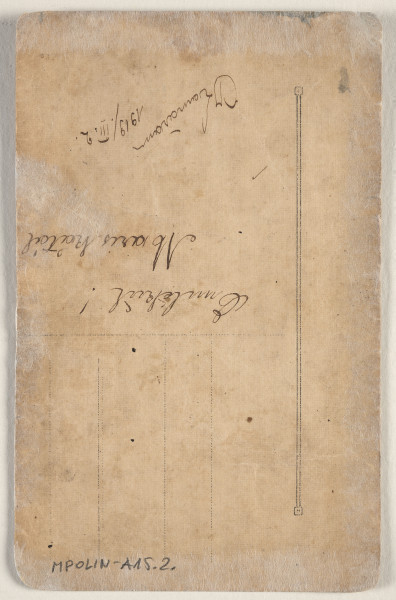 Emlékül!
Mariskától
Komárom
1919/III. 2.
MPOLIN-A15.2.